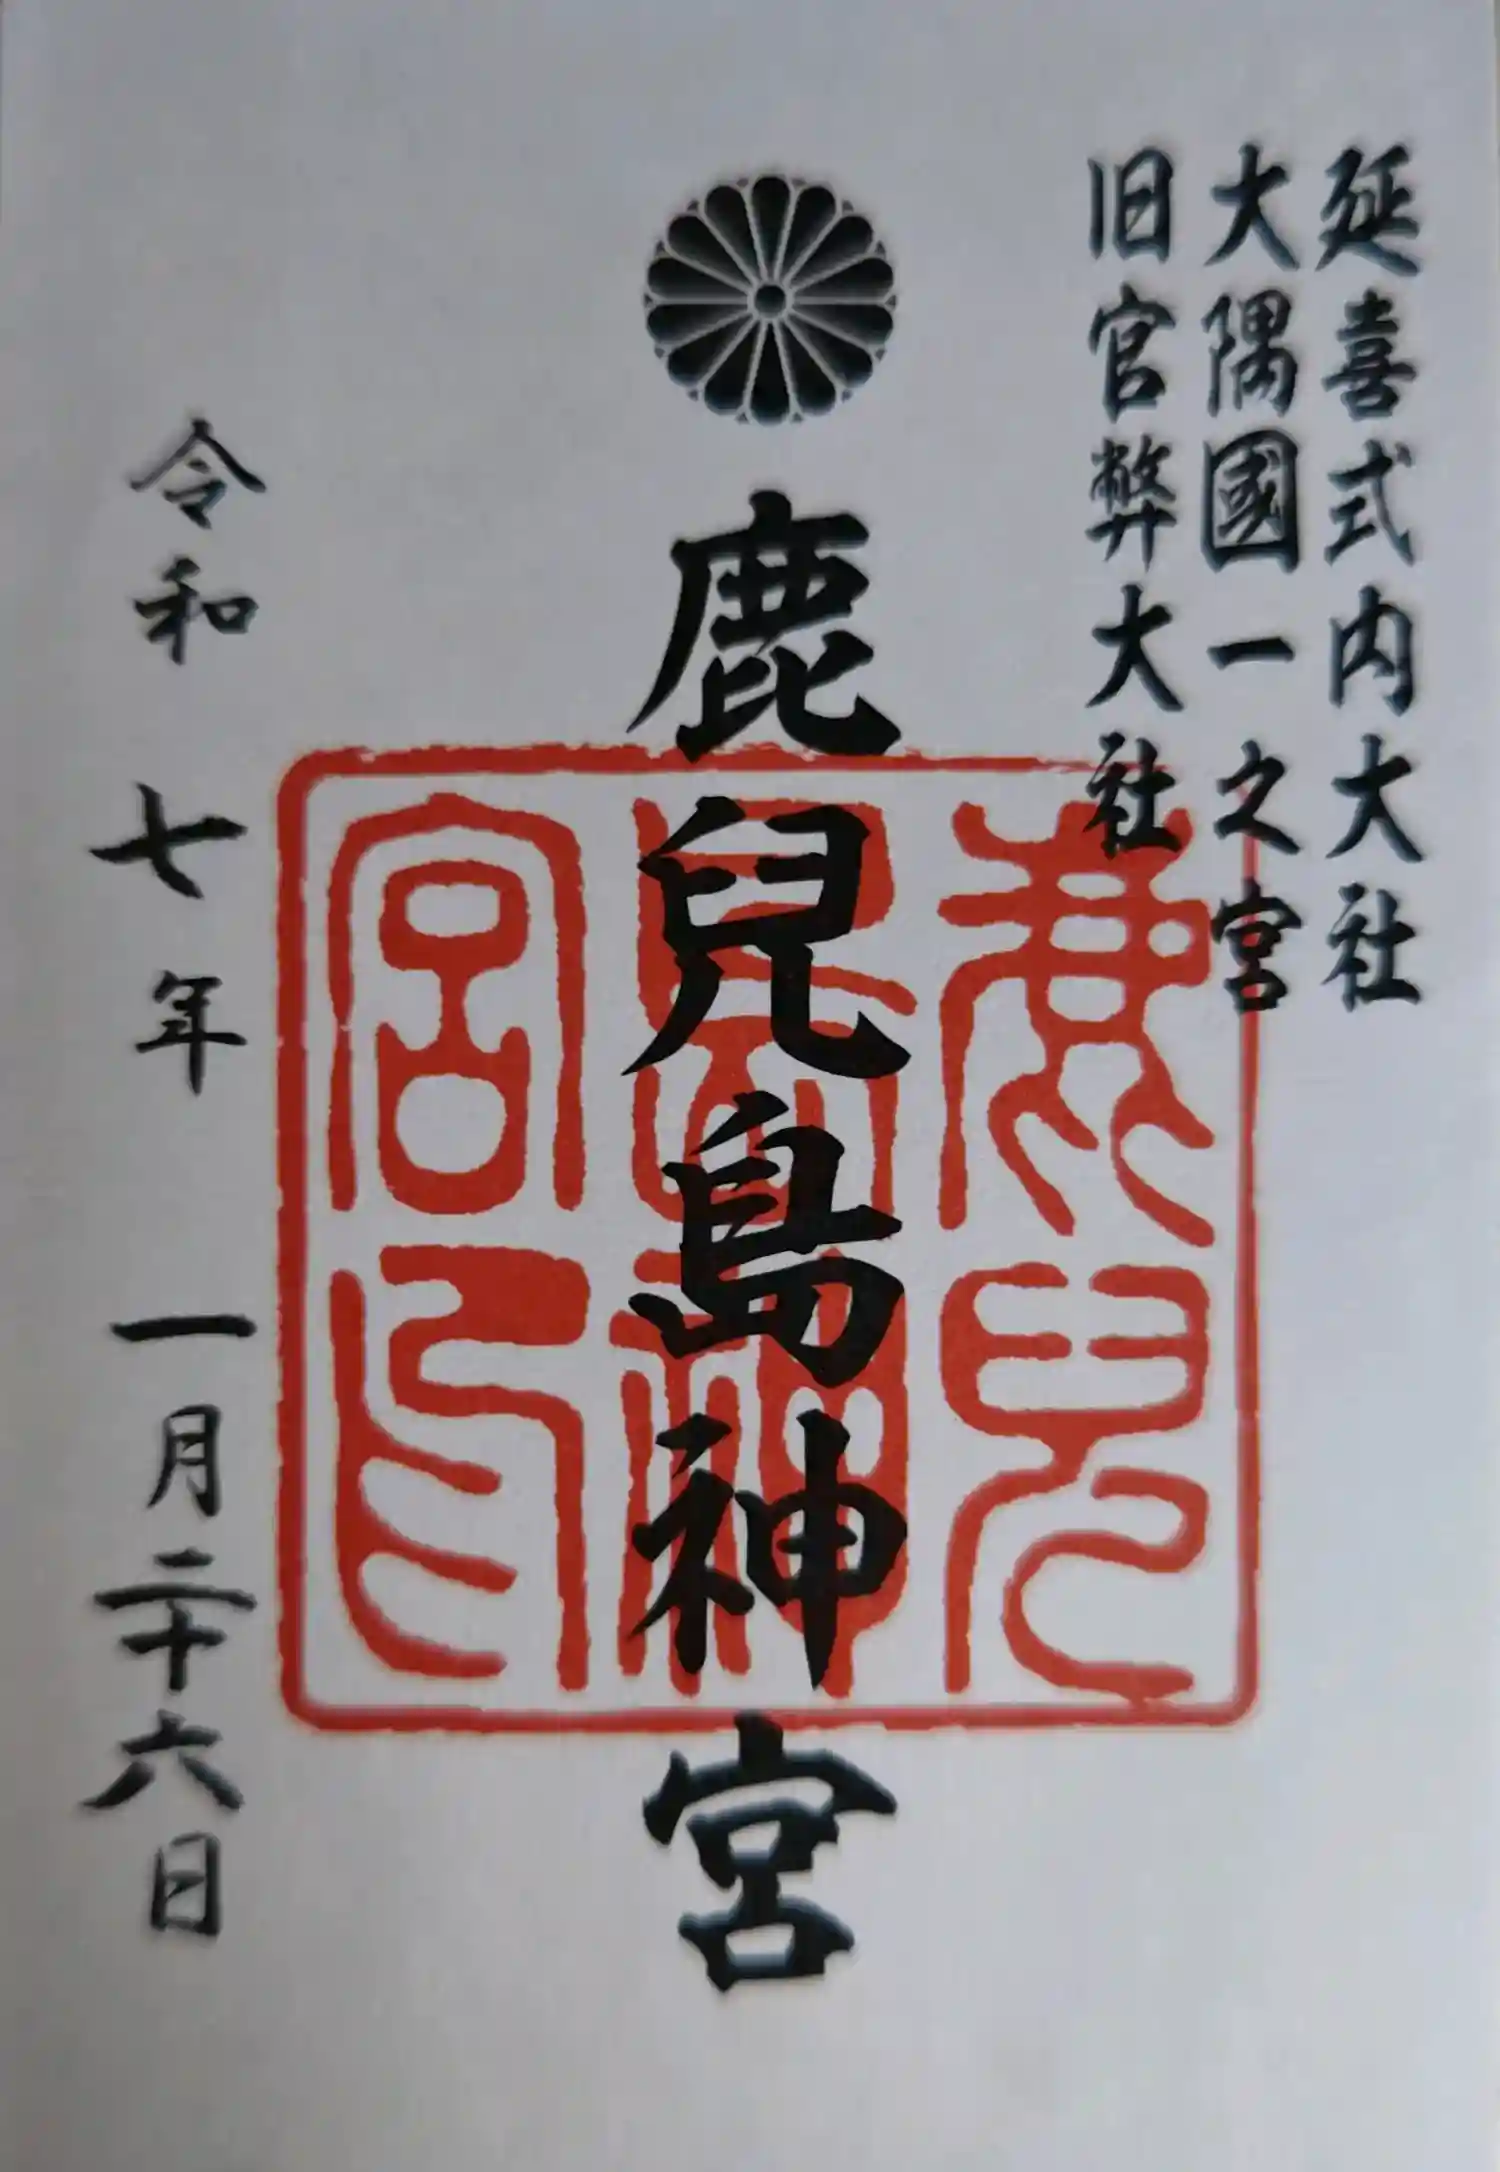 延喜式内大社
大隅國一之宮
旧官弊大社
鹿兒島神宮
令和七年一月二十六日
鹿兒島神宮印